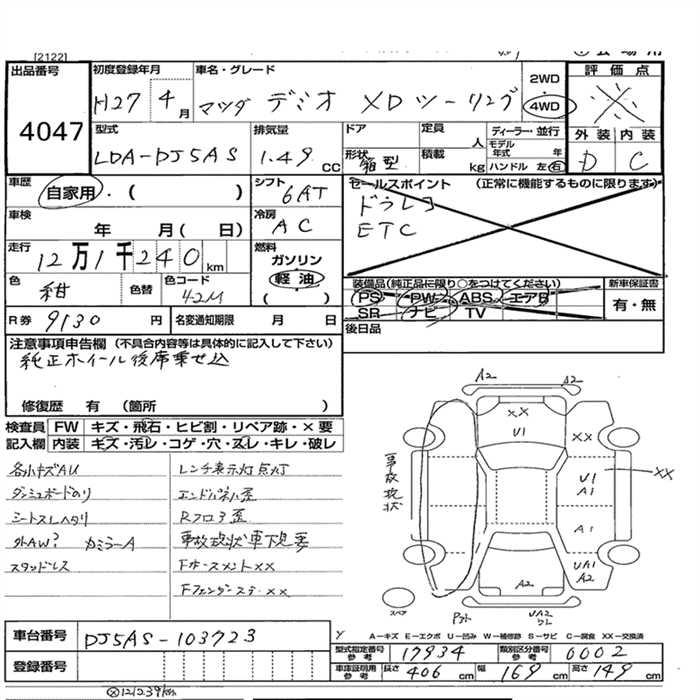 [2122]
出品番号
4047
初度登録年月
H27 4月
車名・グレード
マツダ デミオ XDツーリング
2WD
4WD
評価点
外装 内装
D C
型式
LDA-DJ5AS
排気量
1.49 CC
ドア
形状 箱型
定員 人
積載 kg
ディーラー・並行
モデル年式 年
ハンドル 左 右
車歴
自家用・( )
シフト
6AT
車検
年 月( 日)
冷房
AC
走行
12万1千240km
燃料
ガソリン
軽油
( )
色
紺
色替
色コード
42M
R券 9130 円
名変通知期限 月 日
セールスポイント (正常に機能するものに限ります)
ドラレコ
ETC
装備品(純正品に限り○をつけてください)
PS PW ABS エアB
SR ナビ TV
新車保証書
有・無
後日品
注意事項申告欄 (不具合内容等は具体的に記入して下さい)
純正ホイール後席乗せ込
修復歴 有 (箇所 )
検査員記入欄
FW キズ・飛石・ヒビ割・リペア跡・×要
内装 キズ・汚レ・コゲ・穴・スレ・キレ・破レ
各小キズAU
ダッシュボードのり
シートスレヘタリ
外AW? カミラーA
スタッドレス
レンチ表示灯点灯
Rフロア歪
事故現状車下見要
FホースメントXX
事故現状
A2 A2
XX
U1
U1
A1
XX
A1
UA1
A2
A2
UA2
スペア
A−キズ E−エクボ U−凹み W−補修跡 S−サビ C−腐食 XX−交換済
車台番号 DJ5AS-103723
登録番号
型式指定番号 参考 17934
類別区分番号 参考 0002
車庫証明用 参考 長さ 406 cm 幅 169 cm 高さ 149 cm